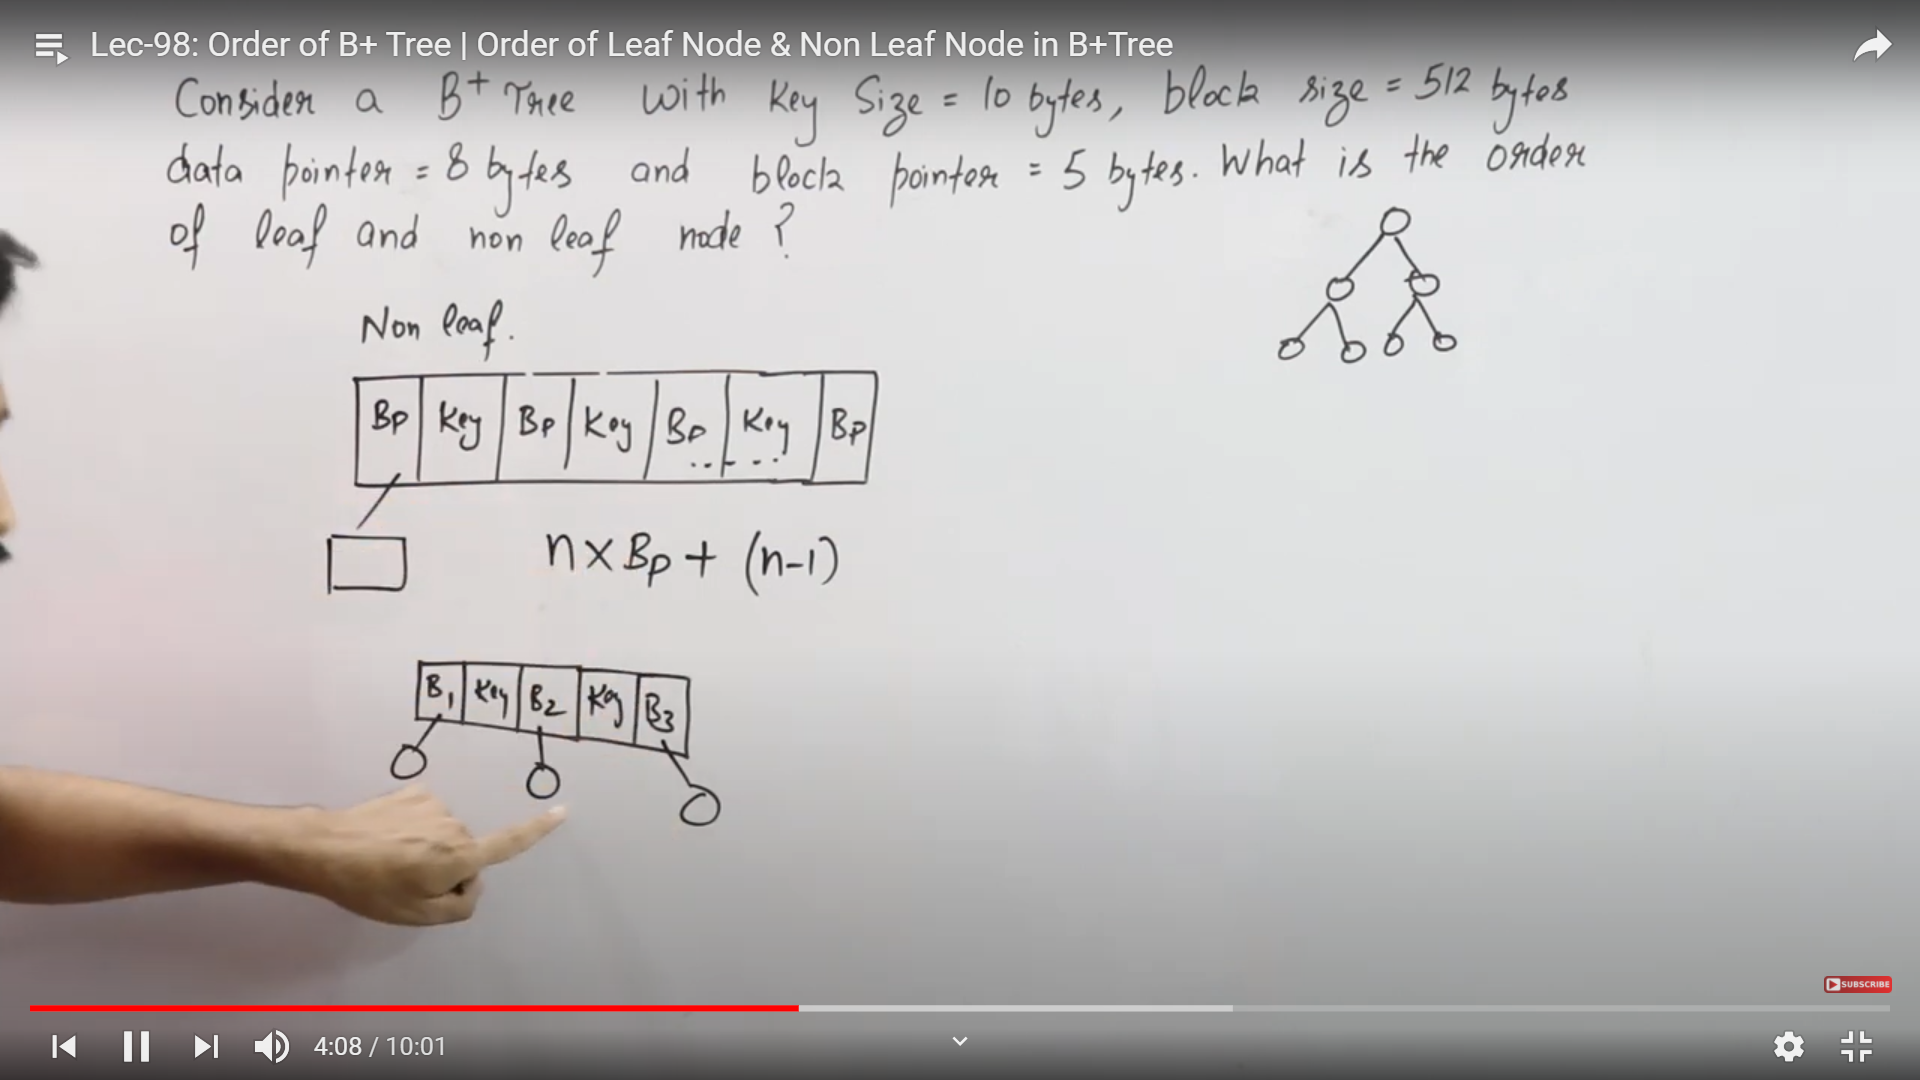 Lec-98: Order of B+ Tree | Order of Leaf Node & Non Leaf Node in B+Tree
Consider a B+ Tree with Key Size = 10 bytes, block size = 512 bytes
data pointer = 8 bytes and block pointer = 5 bytes. What is the order
of leaf and non leaf node ?
Non leaf.
Bp Key Bp Key Bp Key Bp
n × Bp + (n-1)
B1 Key B2 Key B3
SUBSCRIBE
4:08 / 10:01